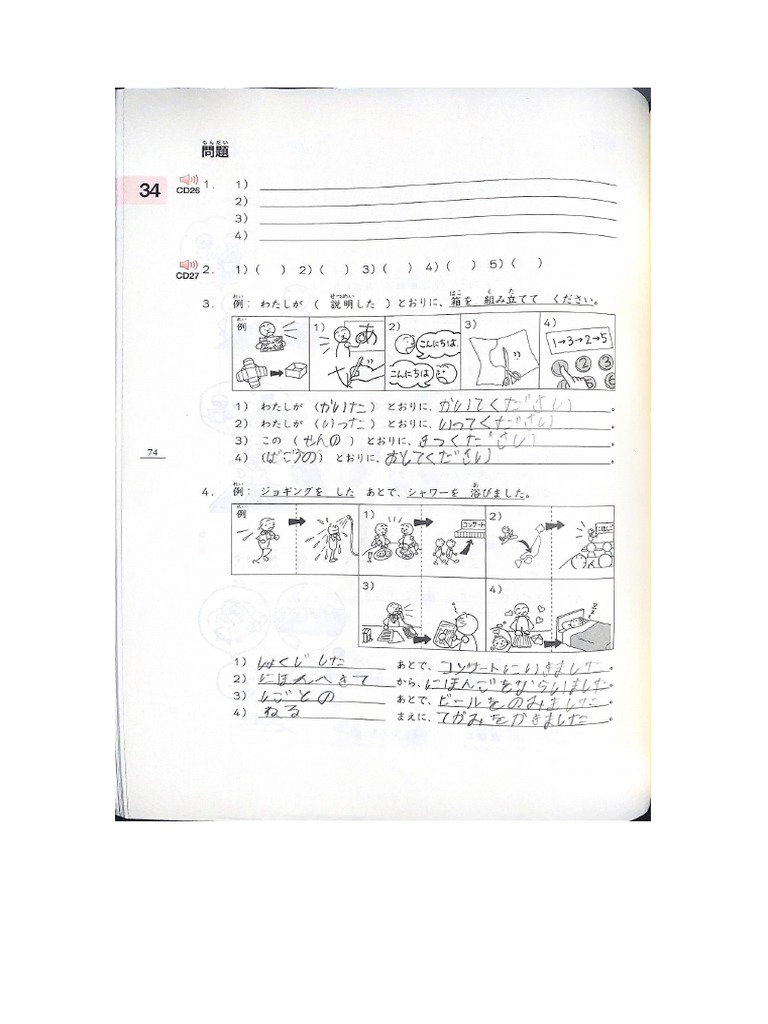 もんだい
問題
34
CD26 1. 1)
2)
3)
4)
CD27 2. 1)( ) 2)( ) 3)( ) 4)( ) 5)( )
れい せつめい はこ く た
3. 例: わたしが ( 説明した ) とおりに、箱を 組み立てて ください。
れい
例 1) あ 2) こんにちは こんにちは 3) 4) 1→3→2→5
① ② ③
1) わたしが (かいた) とおりに、かいてください。
2) わたしが (いった) とおりに、いってください。
3) この (せんの) とおりに、きっください。
4) (ばごうの) とおりに、おしてください。
74
れい あ
4. 例: ジョギングを した あとで、シャワーを 浴びました。
れい
例 1) コンサート 2)
3) 4)
1) しょくじ した あとで、コンサートにいきました。
2) にほんへきて から、にほんごをならいました。
3) しごとの あとで、ビールをのみました。
4) ねる まえに、てがみをかきました。